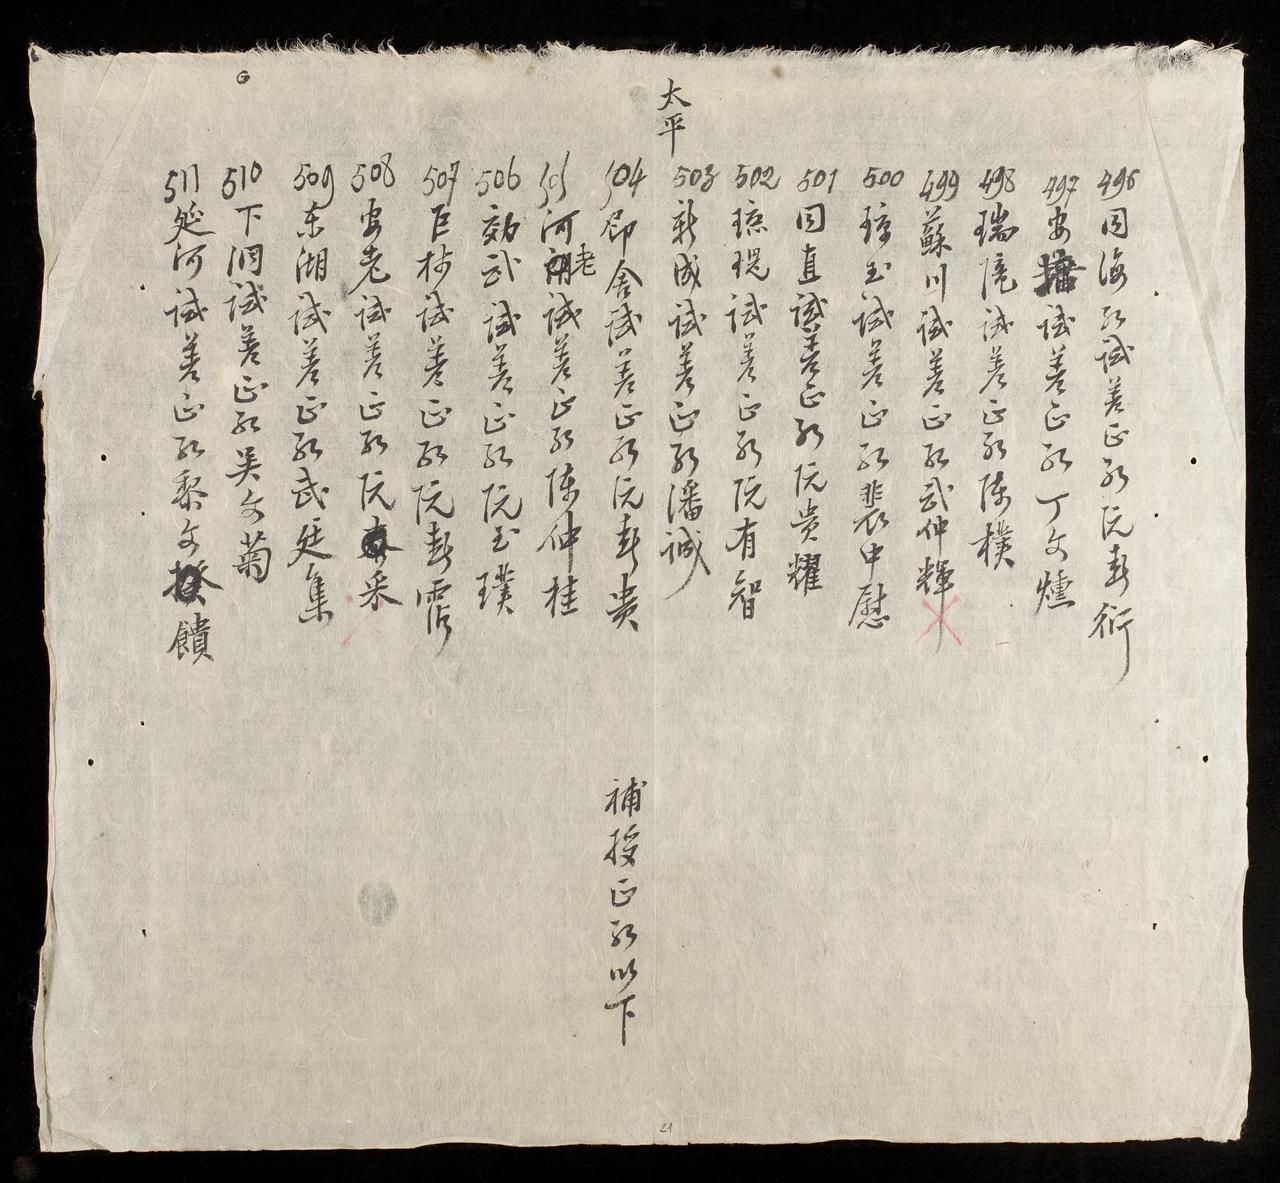 太平
496 同海社試善正社阮春衍
497 安 試善正社丁文燻
498 瑞 試善正社陳樸
499 蘇川試善正社武仲輝
500 瓊玉試善正社裴中慰
501 同直試善正社阮貴耀
502 瓊琨試善正社阮有智
503 新成試善正社潘誠
504 郎舍試善正社阮春貴
505 河老試善正社陳仲桂
506 効武試善正社阮玉璞
507 巨林試善正社阮春霑
508 安老試善正社阮采
509 东湖試善正社武廷集
510 下洞試善正社吴文菊
511 延河試善正社黎文饋
補授正社以下
G
21